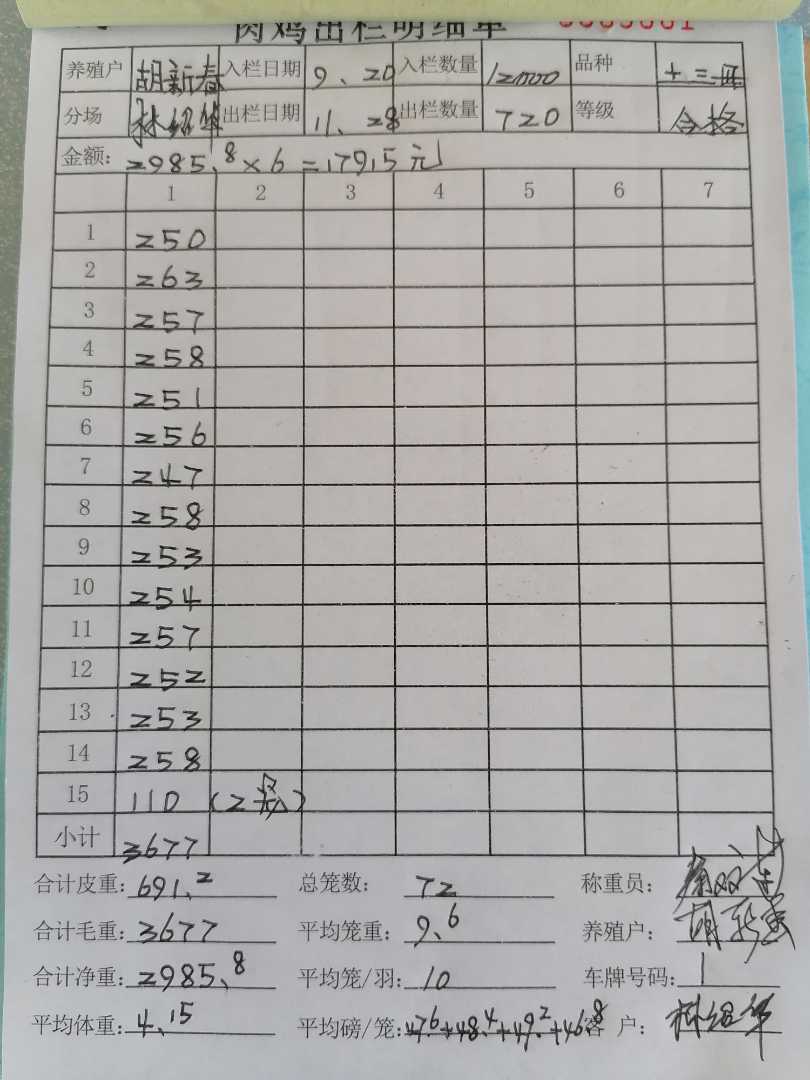 肉鸡出栏明细单
养殖户 胡新春 入栏日期 9、20 入栏数量 12000 品种
分场 林绍华 出栏日期 11、28 出栏数量 720 等级 合格
金额: 2985.8×6=17915元
1 2 3 4 5 6 7
1 250
2 263
3 257
4 258
5 251
6 256
7 247
8 258
9 253
10 254
11 257
12 252
13 253
14 258
15 110 (2 )
小计 3677
合计皮重: 691.2 总笼数: 72 称重员:
合计毛重: 3677 平均笼重: 9.6 养殖户: 胡新春
合计净重: 2985.8 平均笼/羽: 10 车牌号码: 1
平均体重: 4.15 平均磅/笼: 47.6+48.4+49.2+46.8 客 户: 林绍华